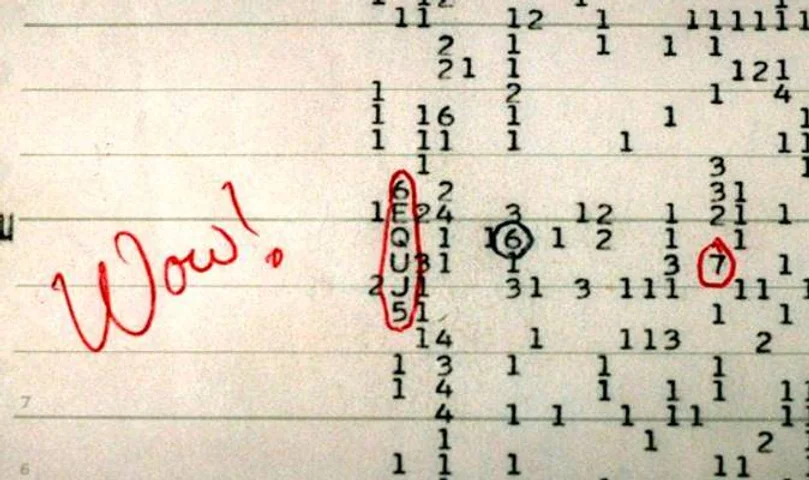 11 12 1 11111
2 1 1 1 1
21 1 121
1 2 1 4
1 16 1 1
1 11 1 1 11
1 3 1
6 2 31
1 E 24 3 12 1 21 1
Wow! Q 1 16 1 2 1 1
U 31 1 3 7 1
2 J 1 31 3 111 11 1
5 1 1 1
14 1 113 2
1 3 1 1 1
7 1 4 1 1 1 11
4 1 1 1 11 11
1 1 2
6 1 1 1 11